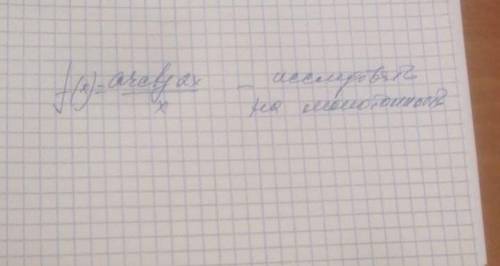 f(x) = arctg 2x / x - исследовать
на монотонность